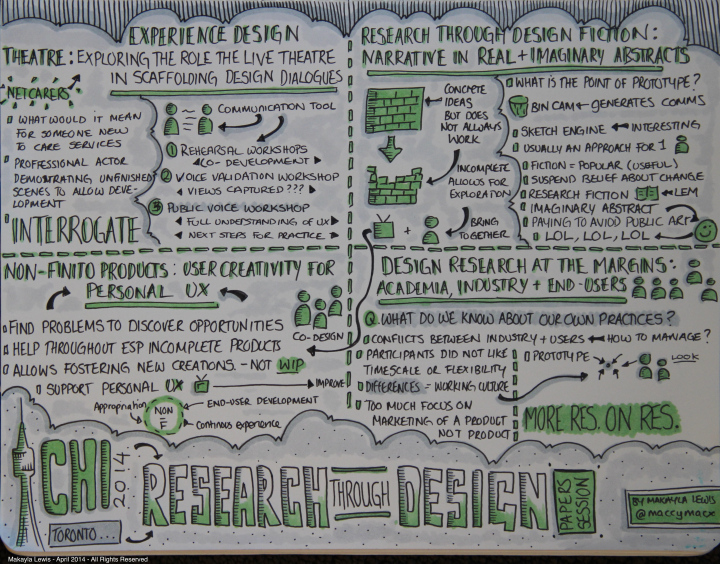 EXPERIENCE DESIGN
THEATRE: EXPLORING THE ROLE THE LIVE THEATRE
IN SCAFFOLDING DESIGN DIALOGUES
NETCARERS
WHAT WOULD IT MEAN
FOR SOMEONE NEW
TO CARE SERVICES
PROFFESSIONAL ACTOR
DEMONSTRATING UNFINISHED
SCENES TO ALLOW DEVE-
LOPMENT
INTERROGATE
COMMUNICATION TOOL
1 REHEARSAL WORKSHOPS
CO-DEVELOPMENT
2 VOICE VALIDATION WORKSHOP
VIEWS CAPTURED???
3 PUBLIC VOICE WORKSHOP
FULL UNDERSTANDING OF UX
NEXT STEPS FOR PRACTICE
RESEARCH THROUGH DESIGN FICTION:
NARRATIVE IN REAL + IMAGINARY ABSTRACTS
CONCRETE
IDEAS
BUT DOES
NOT ALWAYS
WORK
INCOMPLETE
ALLOWS FOR
EXPLORATION
+
BRING
TOGETHER
WHAT IS THE POINT OF PROTOTYPE?
BIN CAM GENERATES COMMS
SKETCH ENGINE INTERESTING
USUALLY AN APPROACH FOR 1
FICTION = POPULAR (USEFUL)
SUSPEND BELIEF ABOUT CHANGE
RESEARCH FICTION LEM
IMAGINARY ABSTRACT
PAYING TO AVOID PUBLIC ART
LOL, LOL, LOL
NON-FINITO PRODUCTS: USER CREATIVITY FOR
PERSONAL UX
CO-DESIGN
FIND PROBLEMS TO DISCOVER OPPORTUNITIES
HELP THROUGHOUT ESP INCOMPLETE PRODUCTS
ALLOWS FOSTERING NEW CREATIONS. - NOT WIP
SUPPORT PERSONAL UX IMPROVE
Appropriation
NON
F
END-USER DEVELOPMENT
Continous experience
DESIGN RESEARCH AT THE MARGINS:
ACADEMIA, INDUSTRY + END-USERS
Q WHAT DO WE KNOW ABOUT OUR OWN PRACTICES?
CONFLICTS BETWEEN INDUSTRY + USERS HOW TO MANAGE?
PARTICIPANTS DID NOT LIKE
TIMESCALE OR FLEXIBILITY
DIFFERENCES = WORKING CULTURE
TOO MUCH FOCUS ON
MARKETING OF A PRODUCT
NOT PRODUCT
PROTOTYPE
LOOK
MORE RES. ON RES.
CHI
2014
TORONTO...
RESEARCH THROUGH DESIGN
PAPERS
SESSION
BY MAKAYLA LEWIS
@maccymacx
Makayla Lewis - April 2014 - All Rights Reserved